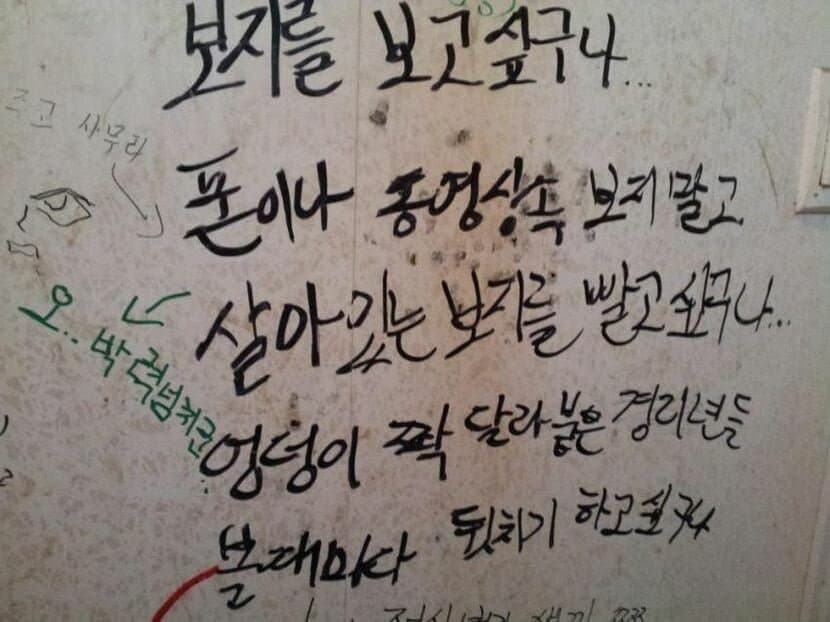 보지를 보고싶구나...
즈고 사무라
폰이나 동영상속 보지말고
살아있는 보지를 빨고싶구나...
오.. 박력넘치군..
엉덩이 쫙 달라붙은 경리년들
볼때마다 뒷치기 하고싶구나